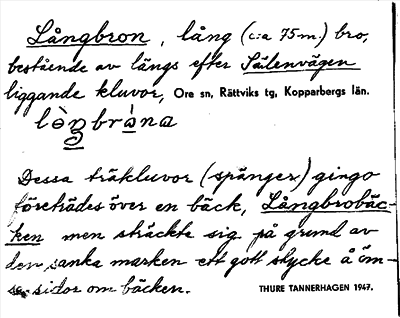 Långbron, lång (c:a 75m.) bro,
bestående av längs efter Sälenvägen
liggande kluvor, Ore sn, Rättviks tg, Kopparbergs län.
Dessa träkluvor (spänger) gingo
företrädes över en bäck, Långbrobäc-
ken men sträckte sig på grund av
den sanka marken ett gott stycke å öm-
se sidor om bäcken. THURE TANNERHAGEN 1947.